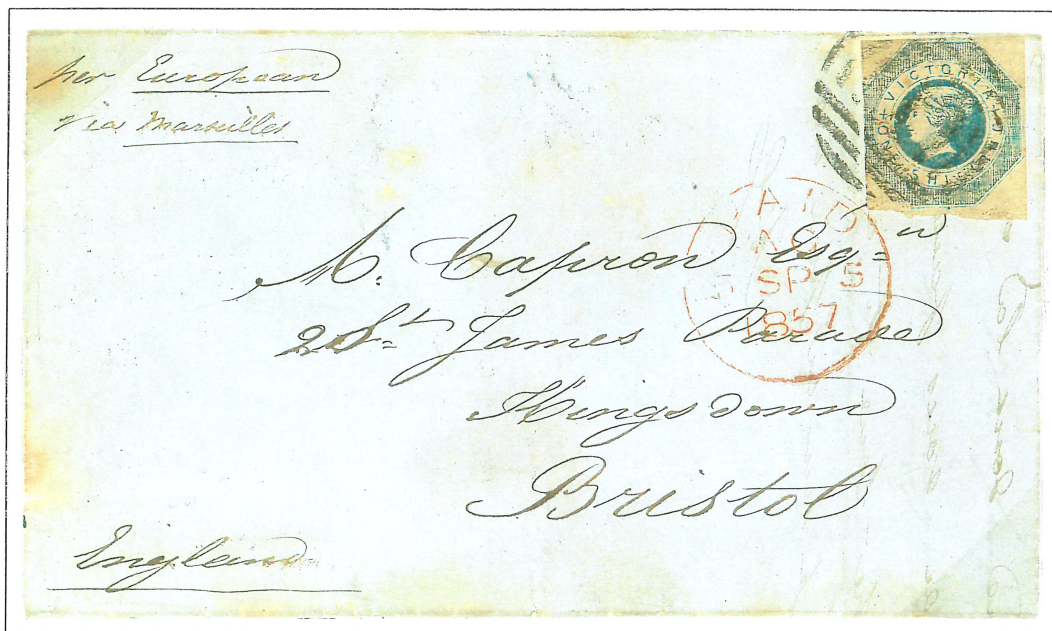 per European
via Marseilles
VICTORIA
ONE SHILLING
PAID
SP 5
1857
A. Capron Esqre
2 St James Parade
Kingsdown
Bristol
England